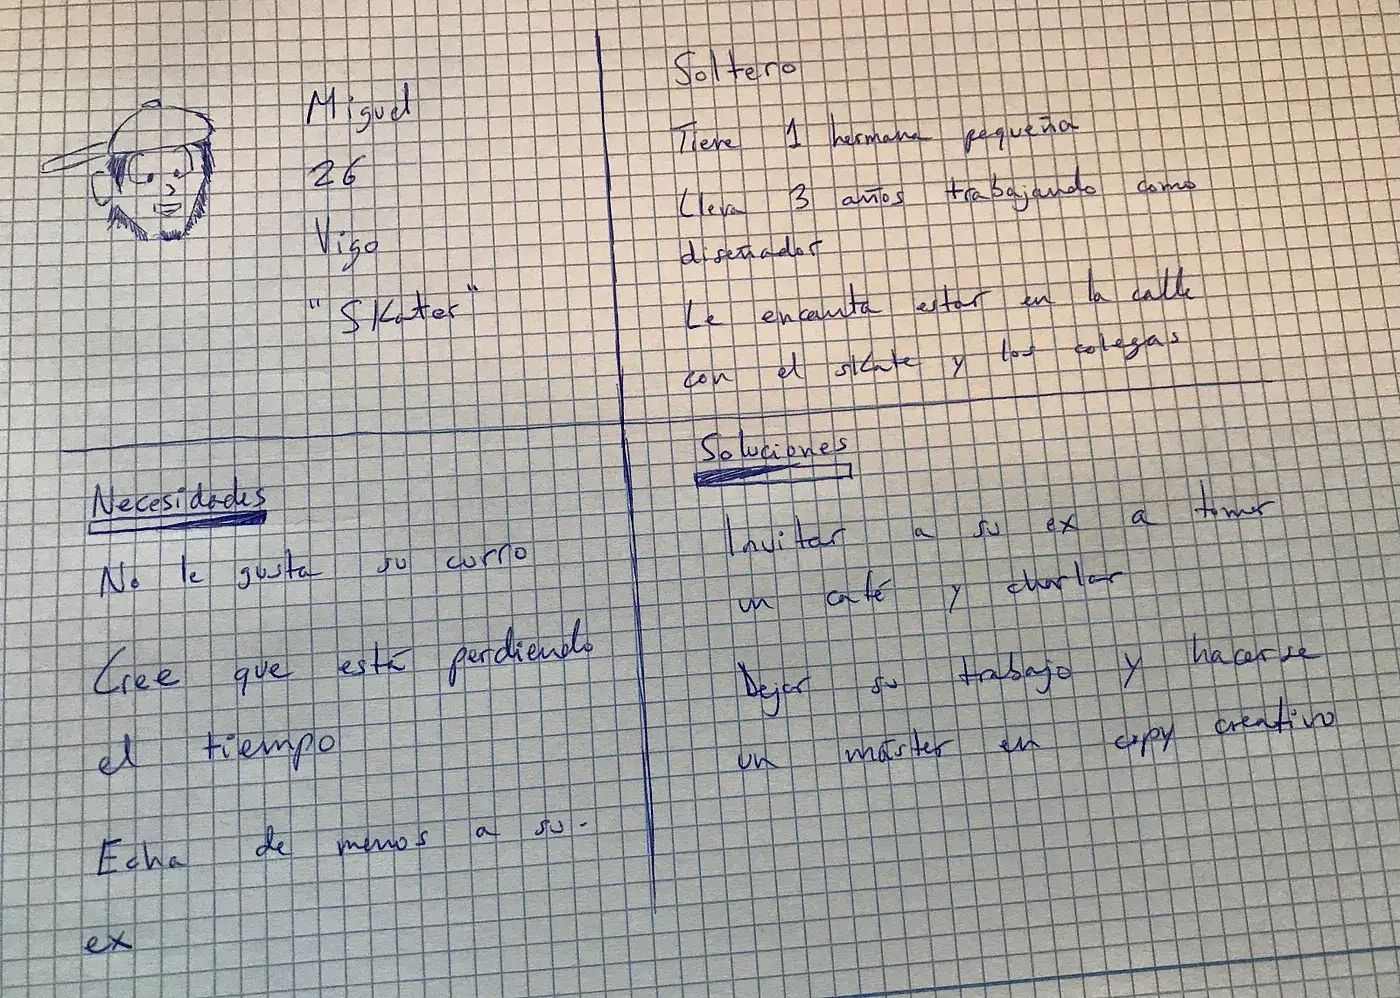 Miguel
26
Vigo
"Skater"
Soltero
Tiene 1 hermana pequeña
Lleva 3 años trabajando como
diseñador
Le encanta estar en la calle
con el skate y los colegas
Necesidades
No le gusta su curro
Cree que está perdiendo
el tiempo
Echa de menos a su
ex
Soluciones
Invitar a su ex a tomar
un café y charlar
Dejar su trabajo y hacerse
un máster en copy creativo